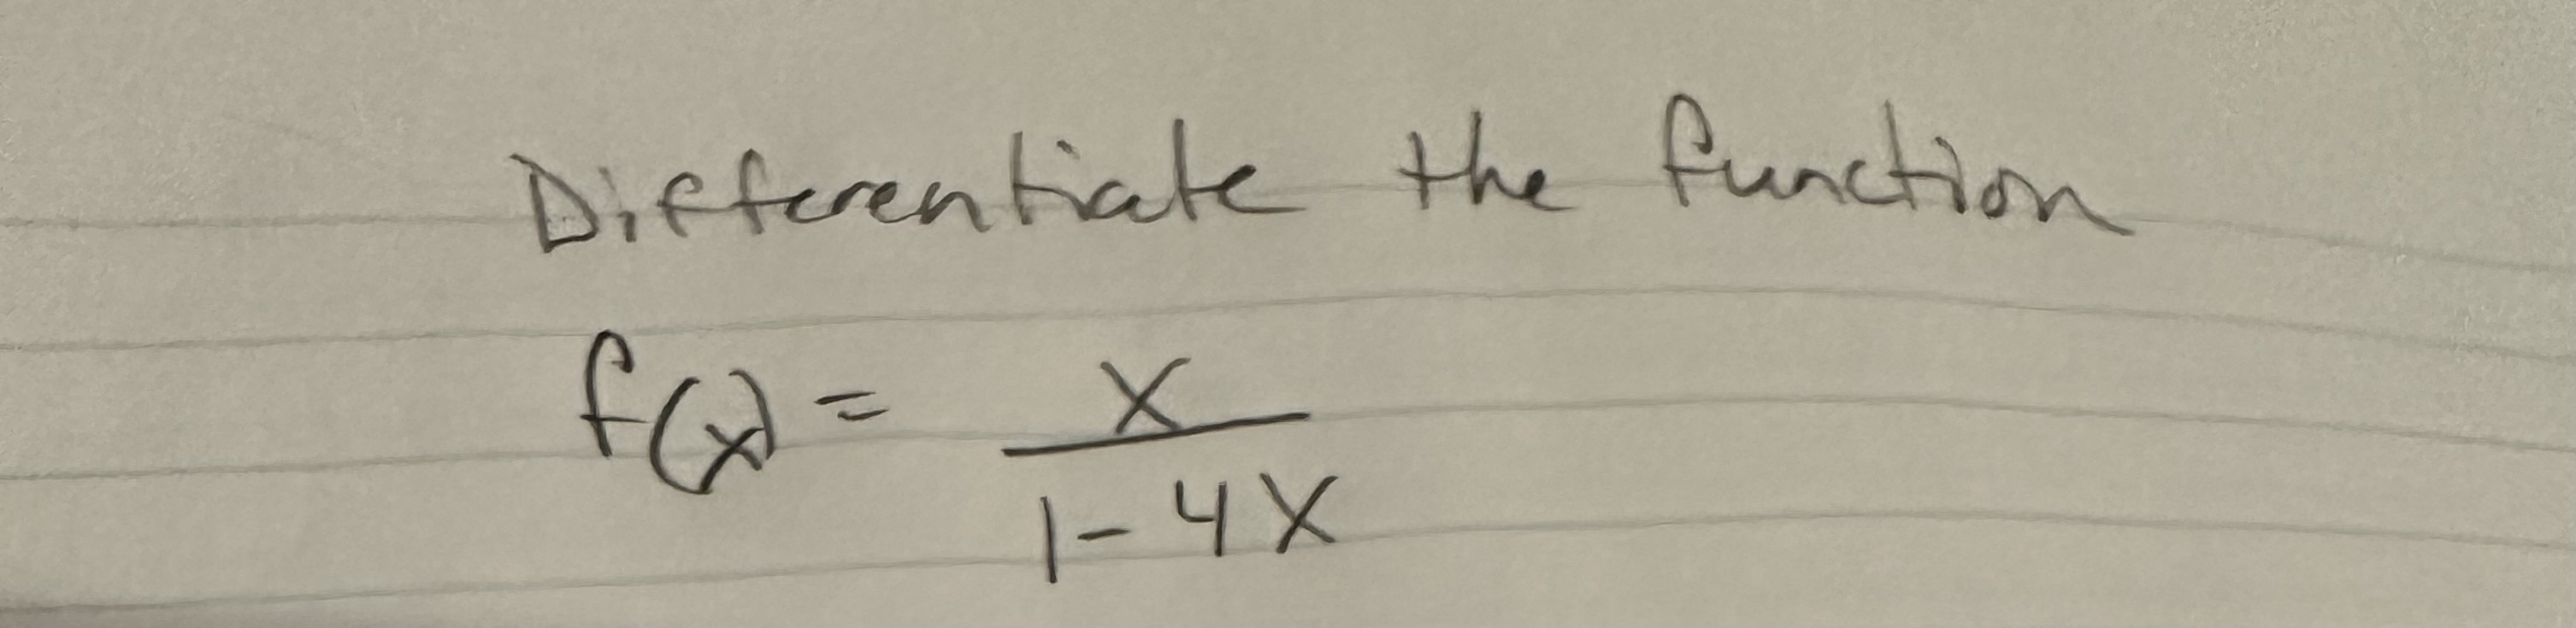 Differentiate the function
f(x) = x / 1 - 4x